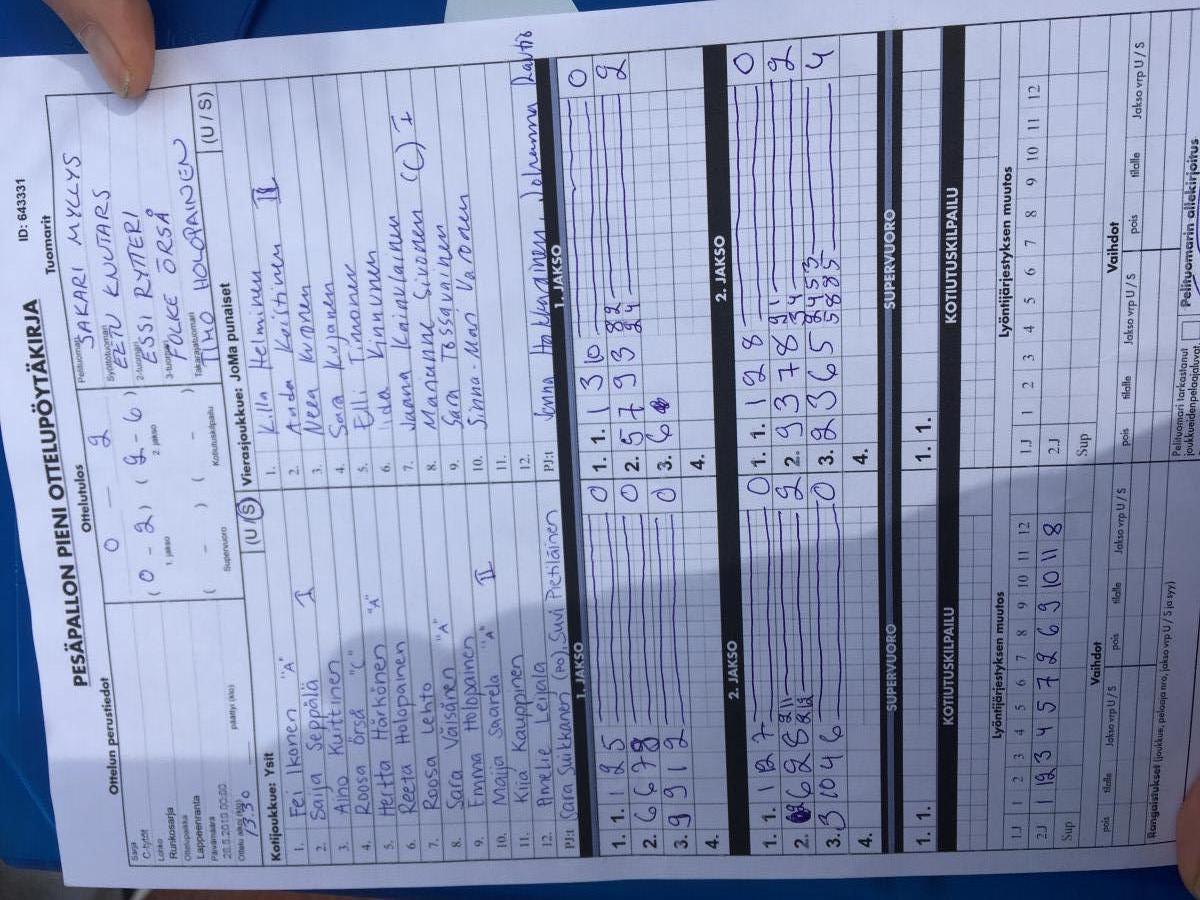 PESÄPALLON PIENI OTTELUPÖYTÄKIRJA
ID: 643331
Ottelun perustiedot
Sarja
C-tytöt
Lohko
Runkosarja
Ottelupaikka
Lappeenranta
Päivämäärä
Ottelu alkoi (klo)
13.30
päättyi (klo)
Ottelutulos
0 - 2
(0 - 2) (2 - 6)
1. jakso 2. jakso
( - ) ( - )
Supervuoro Kotiutuskilpailu
Tuomarit
Pelituomari
SAKARI MYLLYS
Syöttötuomari
EETU KNUTARS
2-tuomari
ESSI RYTTERI
3-tuomari
FOLKE ÖRSÅ
Takarajatuomari
TIMO HOLOPAINEN
Kotijoukkue: Ysit (U/S)
1. Fei Ikonen "A"
2. Saija Seppälä I
3. Aino Kurttinen
4. Roosa Örså "C"
5. Hertta Härkönen "A"
6. Reeta Holopainen
7. Roosa Lehto
8. Sara Väisänen "A"
9. Emma Holopainen
10. Maija Saarela "A" II
11. Kiia Kauppinen
12. Amelie Leijala
PJ:t Sara Suikkanen (PO), Suvi Pietiläinen
Vierasjoukkue: JoMa punaiset (U/S)
1. Helminen II
2.
3. Neea
4. Sara Kujanen
5. Elli Timonen
6. Iida Kinnunen
7. Jaana Kainulainen
8. Sivonen (C) I
9. Sara
10. Sinna-Mari Varonen
11.
12.
PJ:t Jenna Hakkarainen, Johanna Rautio
1. JAKSO
1. 1. 1 2 5 0
2. 6 6 7 8 0
3. 9 9 1 2 0
4.
1. JAKSO
1. 1. 1 3 10 0
2. 5 7 9 3 2
3. 6
4.
2. JAKSO
1. 1. 1 12 7 0
2. 6 2 8 2
3. 3 10 4 6 0
4.
2. JAKSO
1. 1. 1 2 8 0
2. 9 3 7 8 2
3. 2 3 6 5 4
4.
SUPERVUORO
1. 1.
SUPERVUORO
1. 1.
KOTIUTUSKILPAILU
KOTIUTUSKILPAILU
Lyöntijärjestyksen muutos
1.J 1 2 3 4 5 6 7 8 9 10 11 12
2.J 1 12 3 4 5 7 2 6 9 10 11 8
Sup
Lyöntijärjestyksen muutos
1.J 1 2 3 4 5 6 7 8 9 10 11 12
2.J
Sup
Vaihdot
pois tilalle Jakso vrp U / S pois tilalle Jakso vrp U / S
Vaihdot
pois tilalle Jakso vrp U / S pois tilalle Jakso vrp U / S
Rangaistukset (joukkue, pelaaja nro, jakso vrp U / S ja syy)
Pelituomari tarkastanut
joukkueidenpelaajaluvat.
Pelituomarin allekirjoitus